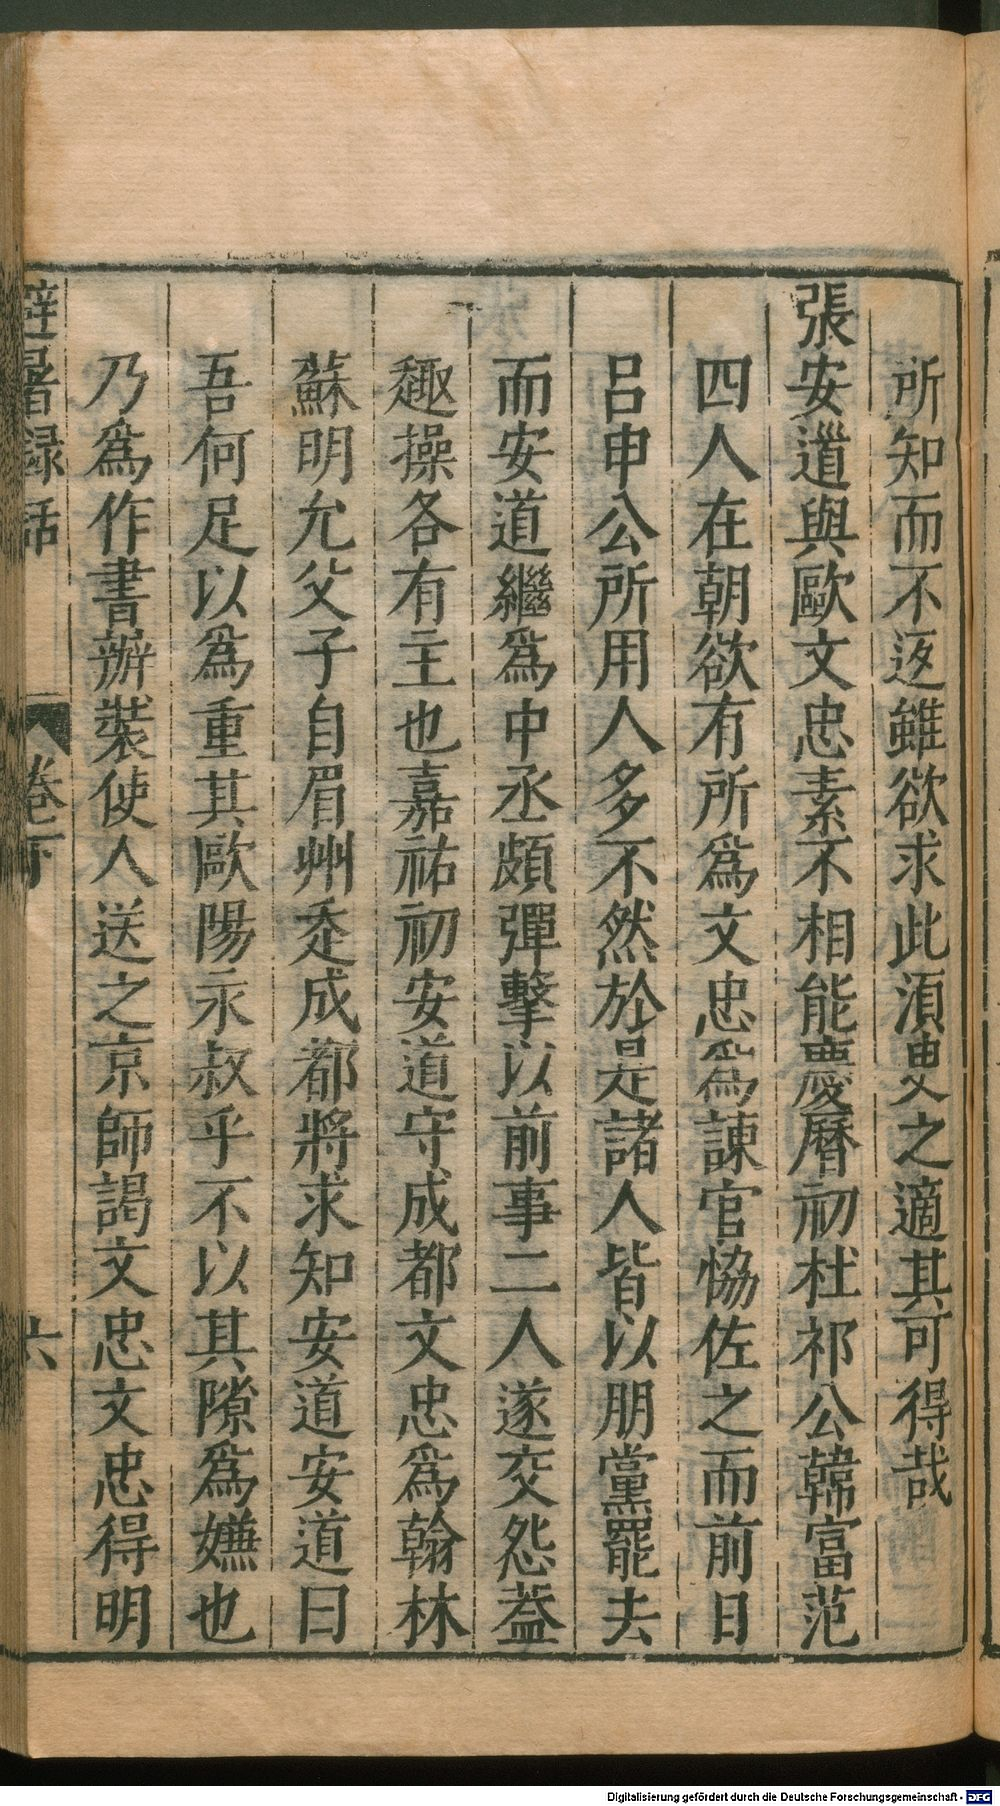 所知而不返雖欲求此須臾之適其可得哉
張安道與歐文忠素不相能慶曆初杜祁公韓富范
四人在朝欲有所爲文忠爲諫官恊佐之而前日
呂申公所用人多不然於是諸人皆以朋黨罷去
而安道繼爲中丞頗彈擊以前事二人遂交怨葢
趣操各有主也嘉祐初安道守成都文忠爲翰林
蘇明允父子自眉州走成都將求知安道安道曰
吾何足以爲重其歐陽永叔乎不以其隙爲嫌也
乃爲作書辦裝使人送之京師謁文忠文忠得明
避暑録話
卷下
六
Digitalisierung gefördert durch die Deutsche Forschungsgemeinschaft - DFG